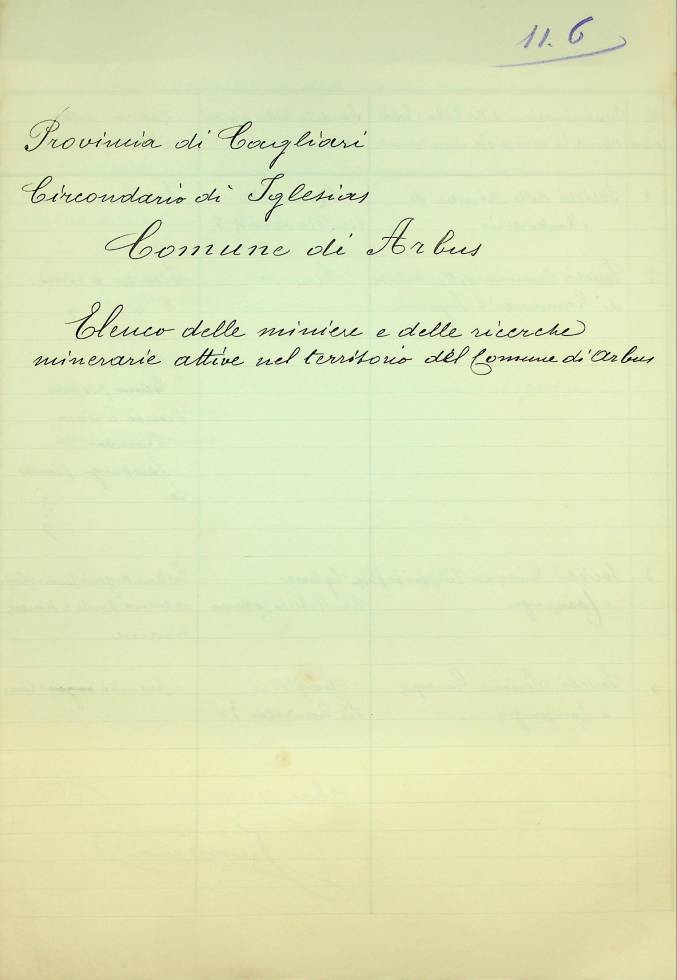 11.6
Provincia di Cagliari
Circondario di Iglesias
Comune di Arbus
Elenco delle miniere e delle ricerche
minerarie attive nel territorio del Comune di Arbus